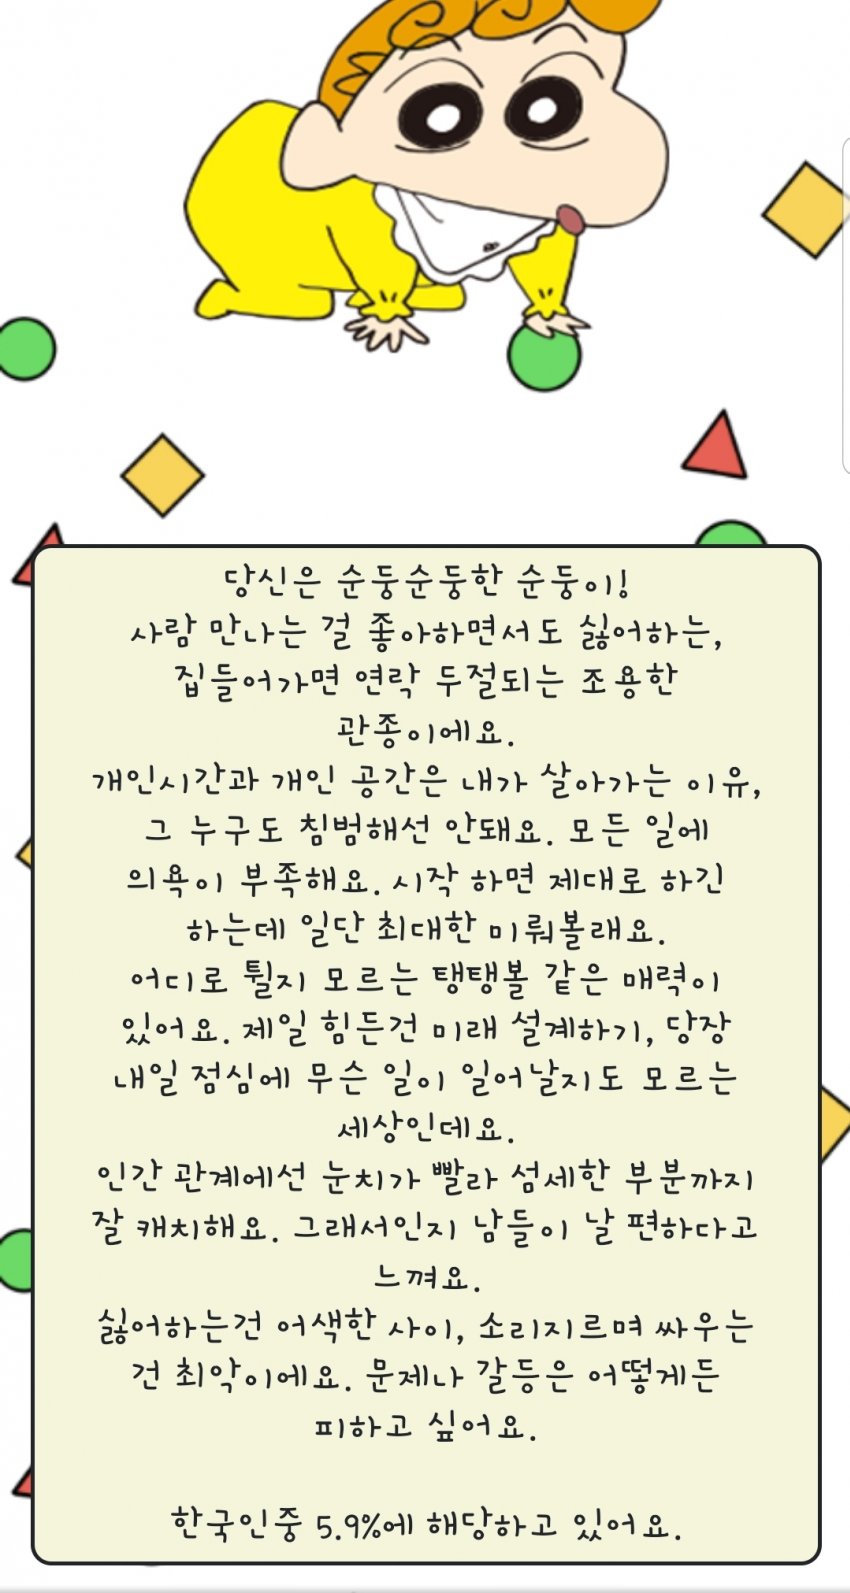 당신은 순둥순둥한 순둥이!
사람 만나는 걸 좋아하면서도 싫어하는,
집들어가면 연락 두절되는 조용한
관종이에요.
개인시간과 개인 공간은 내가 살아가는 이유,
그 누구도 침범해선 안돼요. 모든 일에
의욕이 부족해요. 시작 하면 제대로 하긴
하는데 일단 최대한 미뤄볼래요.
어디로 튈지 모르는 탱탱볼 같은 매력이
있어요. 제일 힘든건 미래 설계하기, 당장
내일 점심에 무슨 일이 일어날지도 모르는
세상인데요.
인간 관계에선 눈치가 빨라 섬세한 부분까지
잘 캐치해요. 그래서인지 남들이 날 편하다고
느껴요.
싫어하는건 어색한 사이, 소리지르며 싸우는
건 최악이에요. 문제나 갈등은 어떻게든
피하고 싶어요.
한국인중 5.9%에 해당하고 있어요.